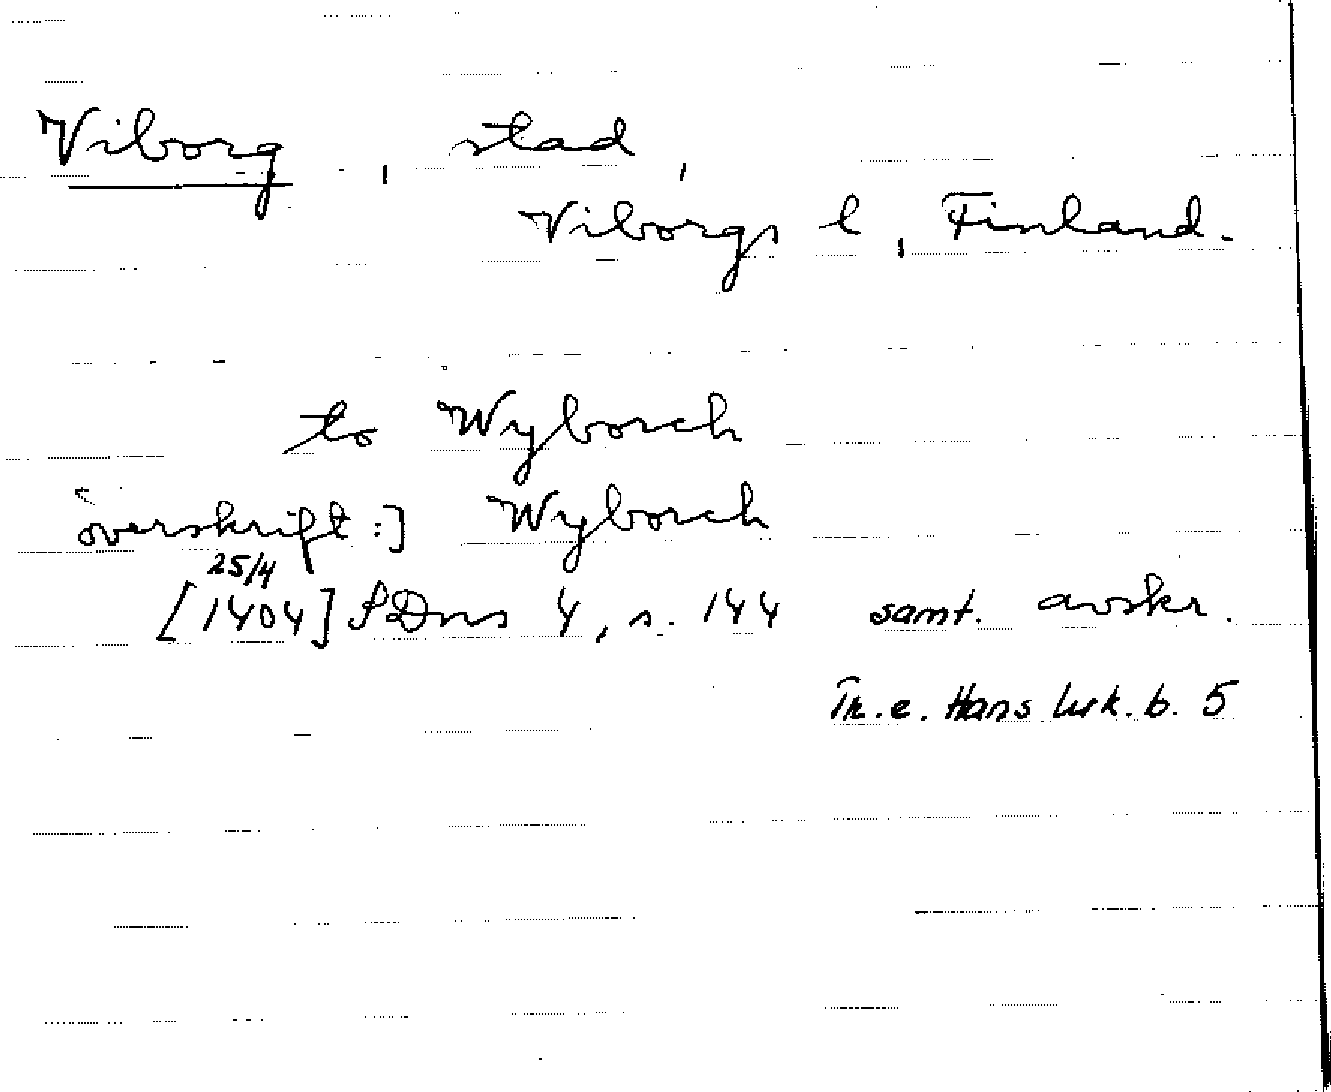 Viborg, stad,
Viborgs l, Finland.
to Wyborch
överskrift:] Wyborch
25/4
[1404] SDns 4, s. 144 samt. avskr.
Tr. e. Hans Urk. b. 5